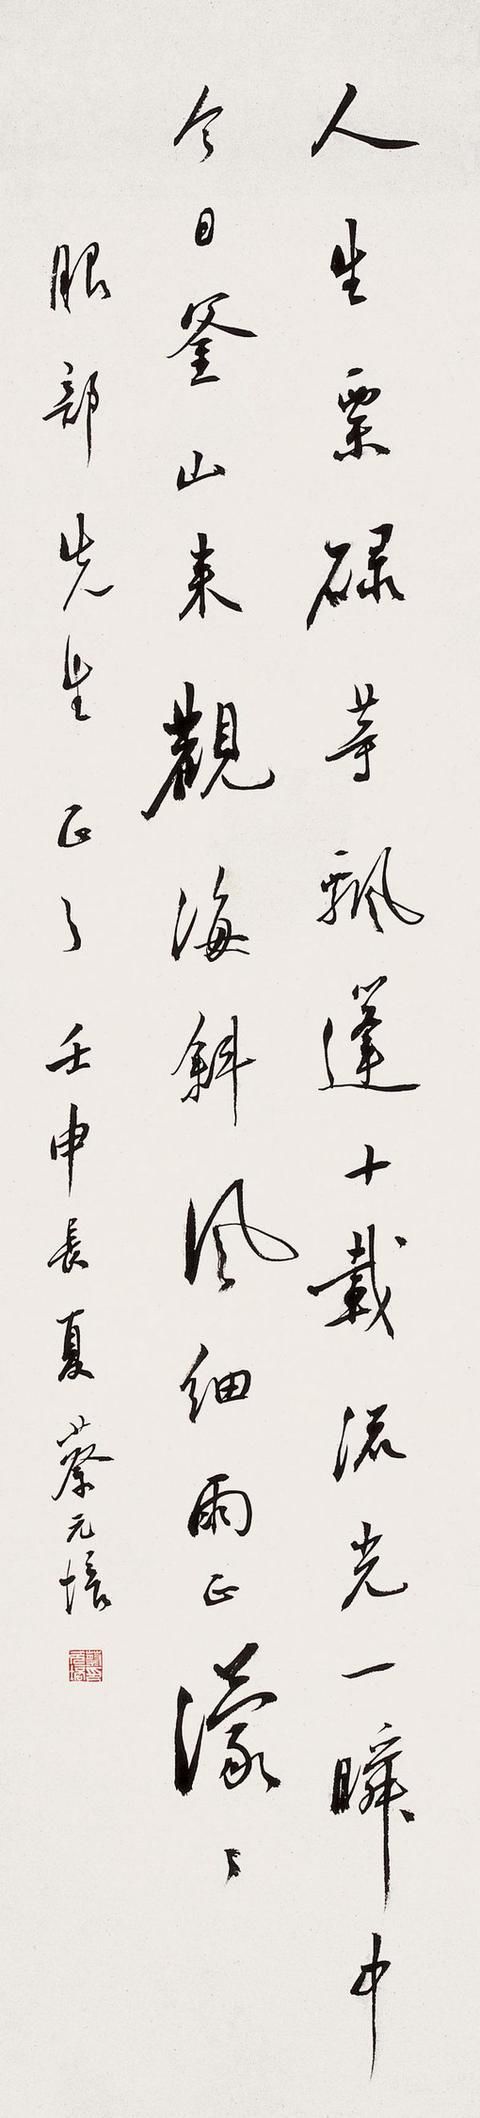 人生栗碌等飄蓬十載流光一瞬中
今日釜山来觀海斜風細雨正濛〻
服部先生正之 壬申長夏 蔡元培